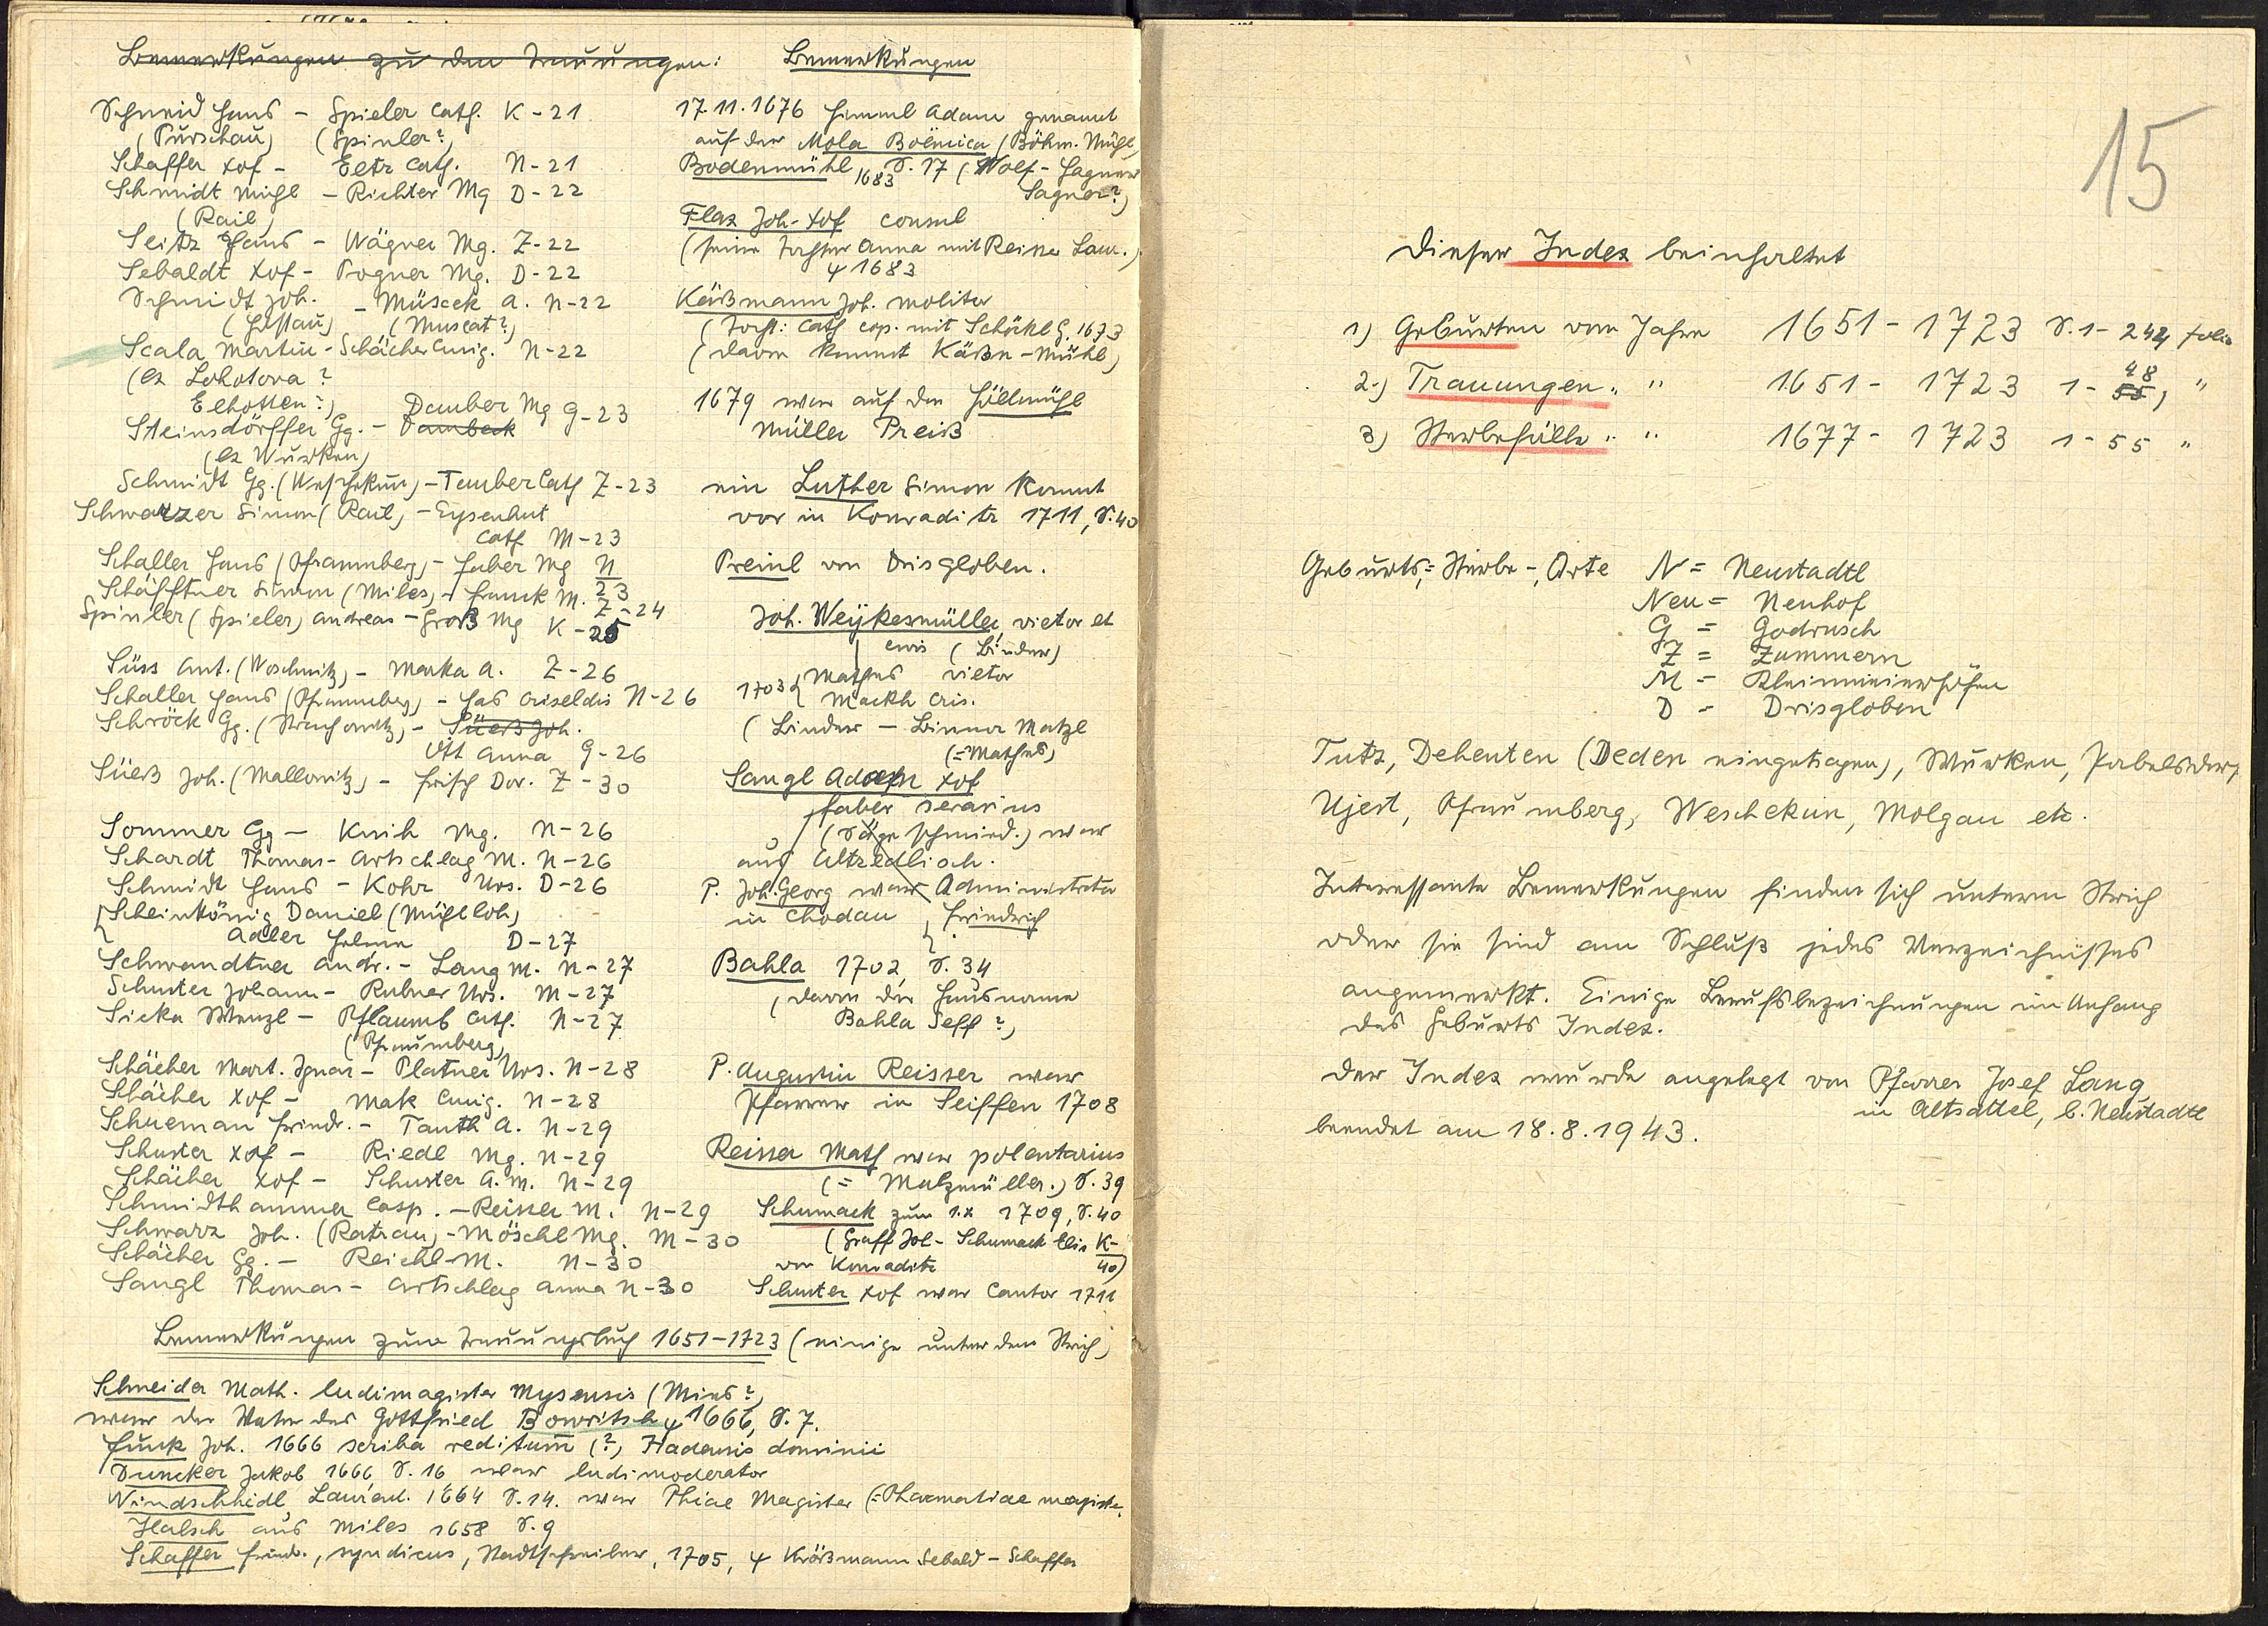 Bemerkungen zu den Trauungen:
Schmid Hans - Spieler Cath. K-21
(Purschau) (Spinler?)
Schaffer Xof - Eltz Cath. N-21
Schmidt Michl - Richter Mg D-22
(Rail)
Seitz Hans - Wagner Mg. Z-22
Sebaldt Xof - Pogner Mg. D-22
Schmidt Joh. - Müscek A. N-22
(Hostau) (Muscat?)
Scala Martin - Schächer Cunig. N-22
(ex Lohotova?
Elhotten?)
Steinsdörffer Gg. - Dambeck Dember Mg G-23
(ex Wurken)
Schmidt Gg. (Weschekun) - Tember Cath Z-23
Schwarzer Simon (Rail) - Eysenhut
Cath M-23
Schaller Hans (Pfraumberg) - Huber Mg N
23
Schäfftner Simon (Miles) - Franck M. Z-24
Spinler (Spieler) Andreas - Groß Mg K-25
Süss Ant. (Woschnitz) - Marka A. Z-26
Schaller Hans (Pfraumberg) - Has Griseldis N-26
Schröck Gg. (Strachowitz) - Süeß Joh.
Ott Anna G-26
Süeß Joh. (Mallowitz) - Frisch Dor. Z-30
Sommer Gg - Knih Mg. N-26
Schardt Thomas - Artschlag M. N-26
Schmidt Hans - Kohr Urs. D-26
Scheinkönig Daniel (Mühlloh)
Adler Helena D-27
Schwandtner Andr. - Lang M. N-27
Schuster Johann - Rubner Urs. M-27
Sicka Wenzl - Pflaumb Cath. N-27
(Pfraumberg)
Schächer Mart. Ignaz - Platner Urs. N-28
Schächer Xof - Mak Cunig. N-28
Schueman Friedr. - Tauth A. N-29
Schuster Xof - Riedl Mg. N-29
Schächer Xof - Schuster A.M. N-29
Schmidthammer Casp. - Reisser M. N-29
Schwarz Joh. (Ratzau) - Möschl Mg. M-30
Schächer Gg. - Reichl M. N-30
Sangl Thomas - Artschlag Anna N-30
Bemerkungen
17.11.1676 Himml Adam genannt
auf der Mola Boëmica (Böhm. Mühl)
Bodenmühl 1683 S. 17 (Wolf - Hagner
Sagner?)
Flax Joh-Xof consul
(seine Tochter Anna mit Reisser Laur.)
1683
Käßmann Joh. molitor
(Tocht: Cath cop. mit Schöckl G. 1673
(davon kommt Käßn-Mühl)
1679 war auf der Höllmühl
Müller Preiß
ein Luther Simon kommt
vor in Konraditz 1711, S. 40
Preinl von Drisgloben.
Joh. Weykesmüller, vietor et
civis (Binder)
1703 { Mathes vietor
Mackh Cris.
(Binder - Binner Matzl
(=Mathes)
Sangl Adam Xof
faber serarius
(Sägeschmied.) war
aus Altzedlisch.
P. Joh. Georg war Administrator
in Chodau, Friedrich
Bahla 1702, S. 34
(davon der Hausname
Bahla Seff?)
P. Augustin Reisser war
Pfarrer in Seiffen 1708
Reisser Math war polentarius
(= Malzmüller.) S. 39
Schumack zum 1.x 1709, S. 40
(Graff Joh - Schumack Elis K-
von Konraditz 40)
Schuster Xof war Cantor 1711
Bemerkungen zum Trauungsbuch 1651-1723 (einige unter dem Strich)
Schneider Math. ludimagister Mysensis (Mies?)
war der Vater des Gottfried Bowitsch 1666, S. 7.
Funk Joh. 1666 scriba reditum (?) Hadensis dominii
Duncker Jakob 1666 S. 16 war ludimoderator
Windschhidl Laurent. 1664 S. 14. war Phiae Magister (=Pharmatiae magister
Halsch aus Miles 1658 S. 9
Schaffer Friedr., syndicus, Stadtschreiber, 1705, Kräßmann Sebald - Schaffer
15
Dieser Index beinhaltet
1) Geburten vom Jahre 1651 - 1723 S. 1 - 242 folio
2.) Trauungen " " 1651 - 1723 1 - 55 48, "
3) Sterbefälle " " 1677 - 1723 1 - 55 "
Geburts-, Sterbe-, Orte N = Neustadtl
Neu = Neuhof
G = Godrusch
Z = Zummern
M = Kleinmeierhöfen
D = Drisgloben
Tutz, Dehenten (Deden eingetragen), Wurken, Pabelsdorf,
Ujest, Pfraumberg, Weschekun, Molgau etc.
Interessante Bemerkungen finden sich unterm Strich
oder sie sind am Schluß jedes Verzeichnisses
angemerkt. Einige Berufsbezeichnungen im Anhang
des Geburts Index.
Der Index wurde angelegt von Pfarrer Josef Lang
in Altsattel, b. Neustadtl
beendet am 18.8.1943.